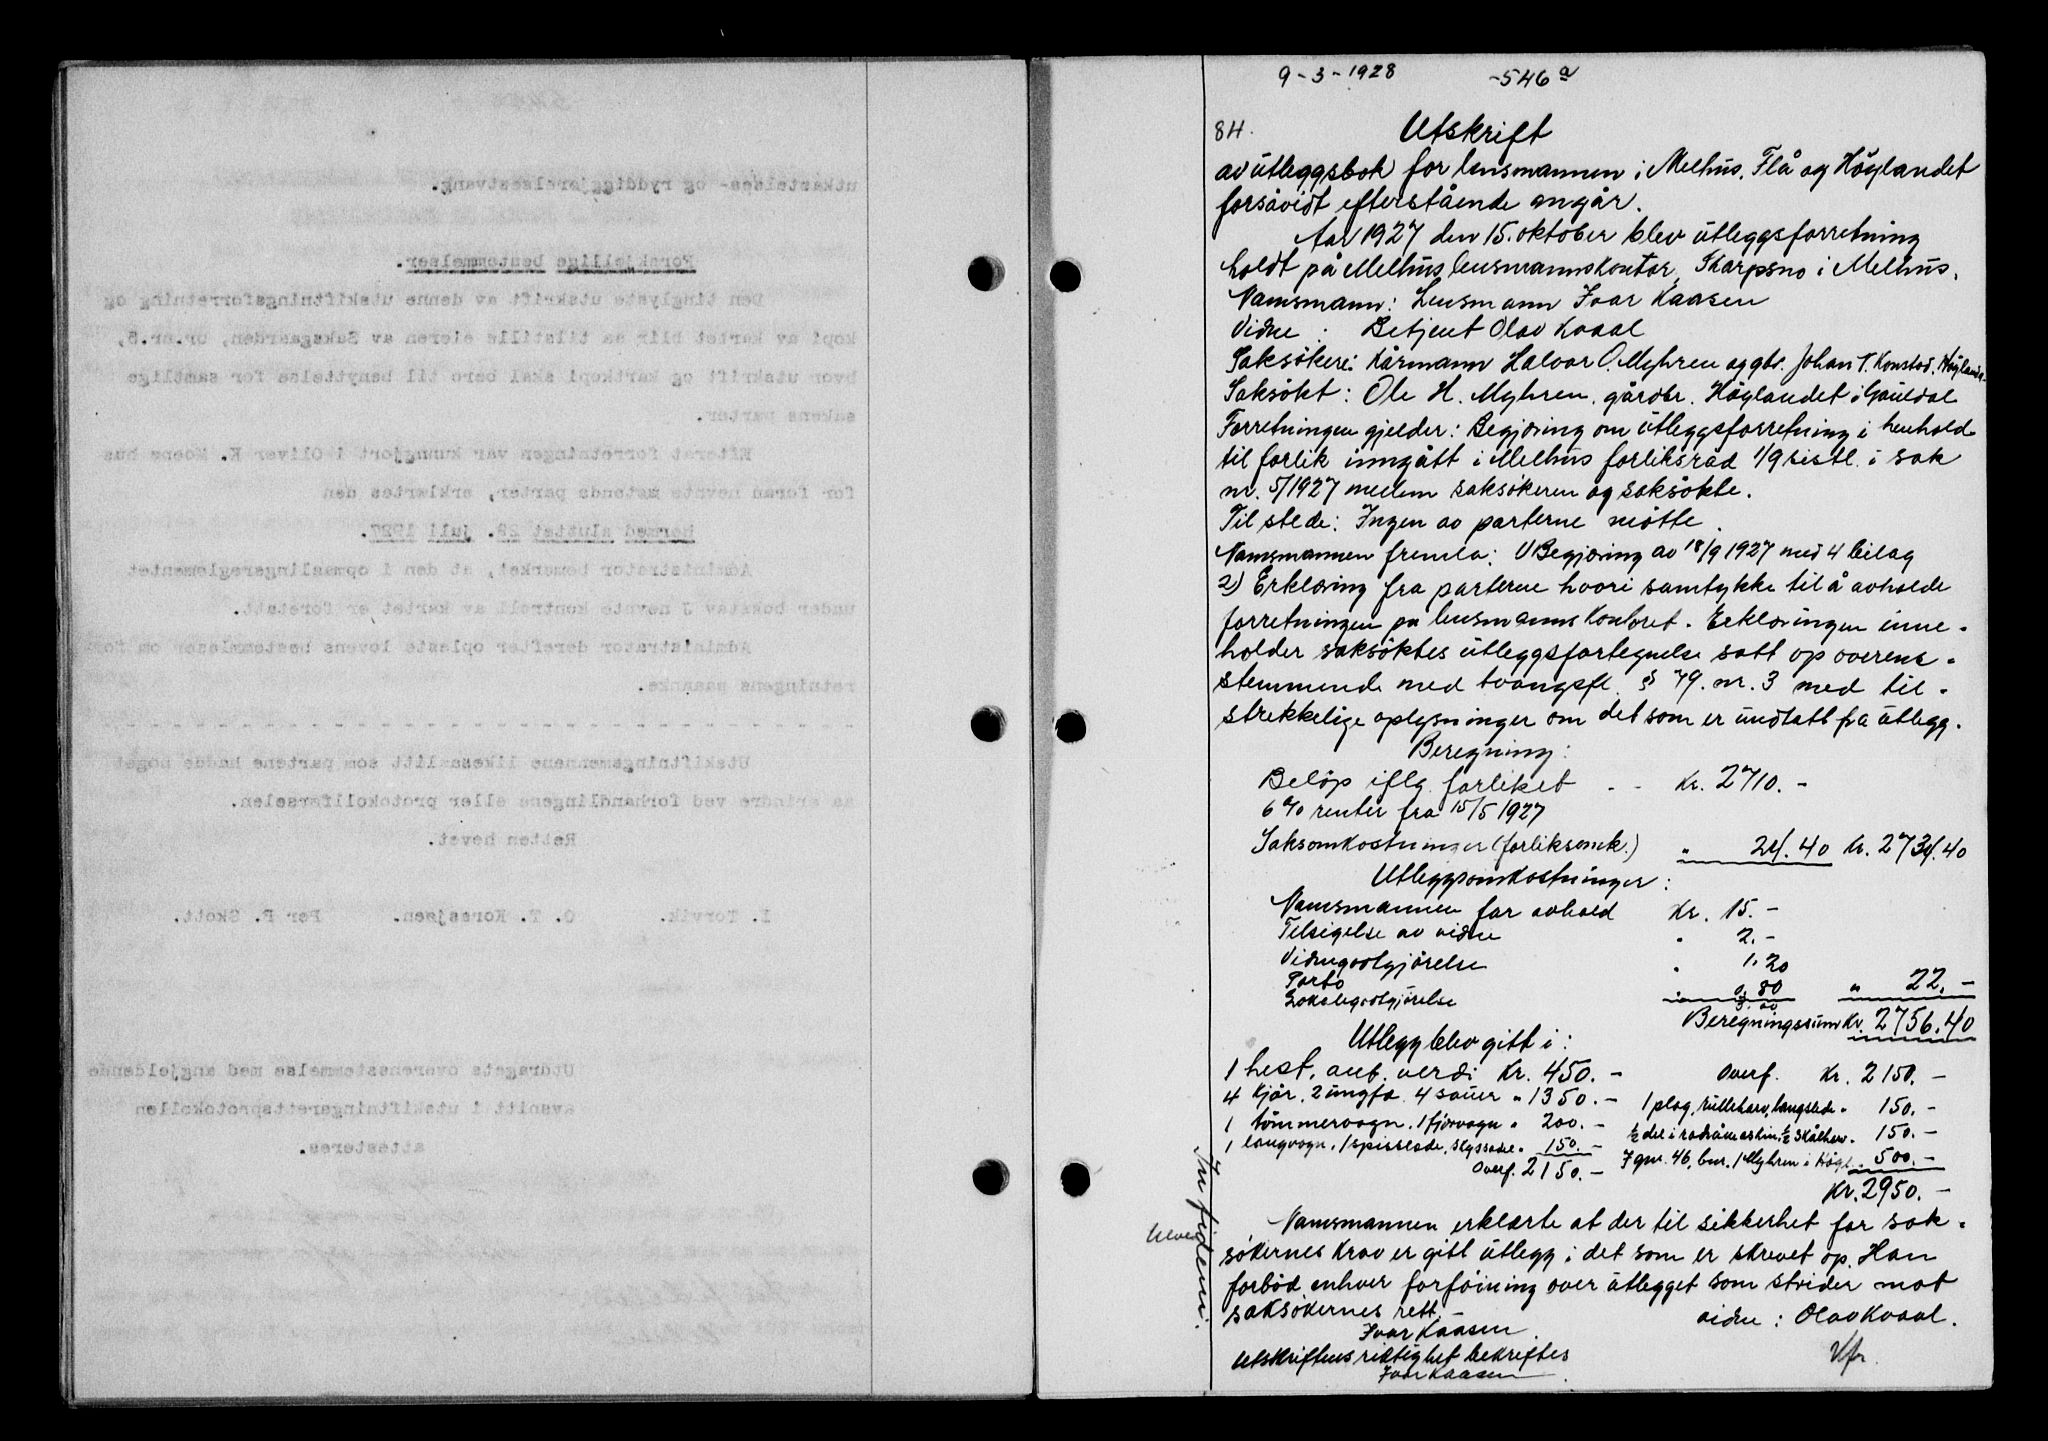 9-3-1928 -546a
84. Utskrift
av utleggsbok for lensmannen i Melhus, Flå og Höylandet
forsåvidt efterstående angår.
Aar 1927 den 15. oktober blev utleggsforretning
holdt på Melhus lensmannskontor, Skarpsno i Melhus.
Namsmann: Lensmann Ivar Kaasen
Vidne: Betjent Olav Kvaal
Saksökere: Kårmann Halvor O. Myhren og gbr. Johan T. Konstad, Höylandet
Saksökt: Ole H. Myhren, gårdbr. Höylandet i Gauldal
Forretningen gjelder: Begjæring om utleggsforretning i henhold
til forlik inngått i Melhus forliksråd 1/9 sistl. i sak
nr. 5/1927 mellem saksökeren og saksökte.
Til stede: Ingen av parterne mötte.
Namsmannen fremla: 1) Begjæring av 18/9 1927 med 4 bilag
2) Erklæring fra parterne hvori samtykke til å avholde
forretningen på lensmannskontoret. Erklæringen inne-
holder saksöktes utleggsfortegnelse satt op overens-
stemmende med tvangsfl. § 79. nr. 3 med til-
strekkelige oplysninger om det som er undtatt fra utlegg.
Beregning:
Belöp iflg. forliket - - Kr. 2710.-
6 % renter fra 15/5 1927
Saksomkostninger (forliksomk.) " 24.40 Kr. 2734.40
Utleggsomkostninger:
Namsmannen for avhold Kr. 15.-
Tilsigelse av vidne " 2.-
Vidnegodtgjörelse " 1,20
Porto " 0,80 " 22.-
3.00
Beregningssum Kr. 2756.40
Utlegg blev gitt i:
1 hest, anb. verdi Kr. 450.- Overf. Kr. 2150.-
4 kjör, 2 ungfæ 4 sauer " 1350.- 1 plog, rulleharv, langslede " 150.-
1 tömmervogn, 1 fjærvogn " 200.- 150.-
1 langvogn, 1 spisslede, " 150.- gnr. 46, bnr. 1 Myhren i Högl. 500.-
Overf. 2150.-
Kr. 2950.-
Namsmannen erklærte at der til sikkerhet for sak-
sökernes krav er gitt utlegg i det som er skrevet op. Han
forböd enhver forföining over utlegget som strider mot
saksökernes rett.-
Ivar Kaasen. vidne: Olav Kvaal.
Utskriftens riktighet bekreftes
Ivar Kaasen
In fidem:
utkastelses- og ryddiggjørelsestvang.
Forskjellige bestemmelser.
Den tinglyste utskrift av denne utskiftningsforretning og
kopi av kartet blir aa tilstille eieren av Saksgaarden, br.nr.5,
hvor utskrift og kartkopi skal bero til benyttelse for samtlige
sakens parter.
Efterat forretningen var kunngjort i Oliver K. Moens hus
for foran nevnte møtende parter, erklærtes den
hermed sluttet 29. juli 1927.
Administrator bemerket, at den i opmaalingsreglementet
under bokstav J nevnte kontroll av kartet er foretatt.
Administrator derefter opleste lovens bestemmelser om for-
retningens paaanke.
Utskiftningsmennene likesaalitt som partene hadde noget
aa erindre ved forhandlingene eller protokollførselen.
Retten hevet.
I. Torvik. O. T. Korssjøen. Per P. Skott.
Utdragets overensstemmelse med angjeldende
avsnitt i utskiftningsrettsprotokollen
attesteres.